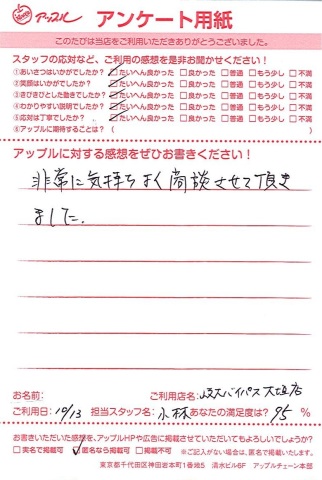 アップル アンケート用紙
このたびは当店をご利用いただきありがとうございました。
スタッフの応対など、ご利用の感想を是非お聞かせください！
①あいさつはいかがでしたか？ ☑たいへん良かった □良かった □普通 □もう少し □不満
②笑顔はいかがでしたか？ ☑たいへん良かった □良かった □普通 □もう少し □不満
③きびきびとした動きでしたか？ ☑たいへん良かった □良かった □普通 □もう少し □不満
④わかりやすい説明でしたか？ ☑たいへん良かった □良かった □普通 □もう少し □不満
⑤応対は丁寧でしたか？ ☑たいへん良かった □良かった □普通 □もう少し □不満
⑥アップルに期待することは？ ( )
アップルに対する感想をぜひお書きください！
非常に気持ちよく商談させて頂き
ました。
お名前: ご利用店名: バイパス大垣店
ご利用日: 10/13 担当スタッフ名: 小林 あなたの満足度は？ 95 %
お書きいただいた感想を、アップルHPや広告に掲載させていただいてもよろしいでしょうか？
□実名で掲載可 ☑匿名なら掲載可 □掲載不可 ※ご記入がない場合は、匿名で掲載いたします。
東京都千代田区神田岩本町1番地5 清水ビル6F アップルチェーン本部